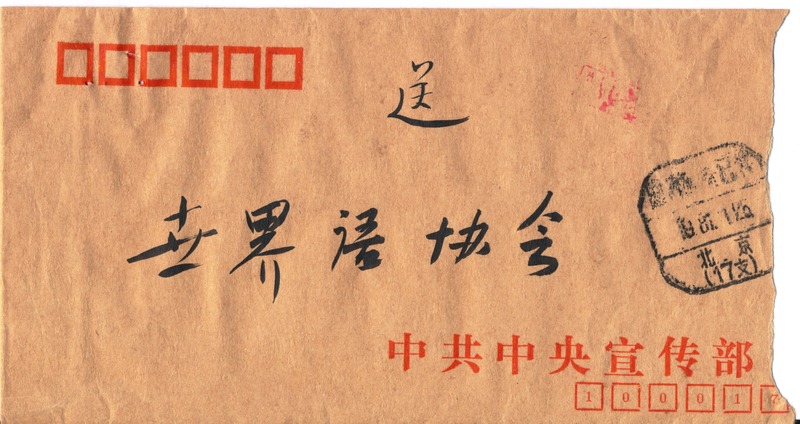 送
世界语协会
北京
(17支)
中共中央宣传部
100017